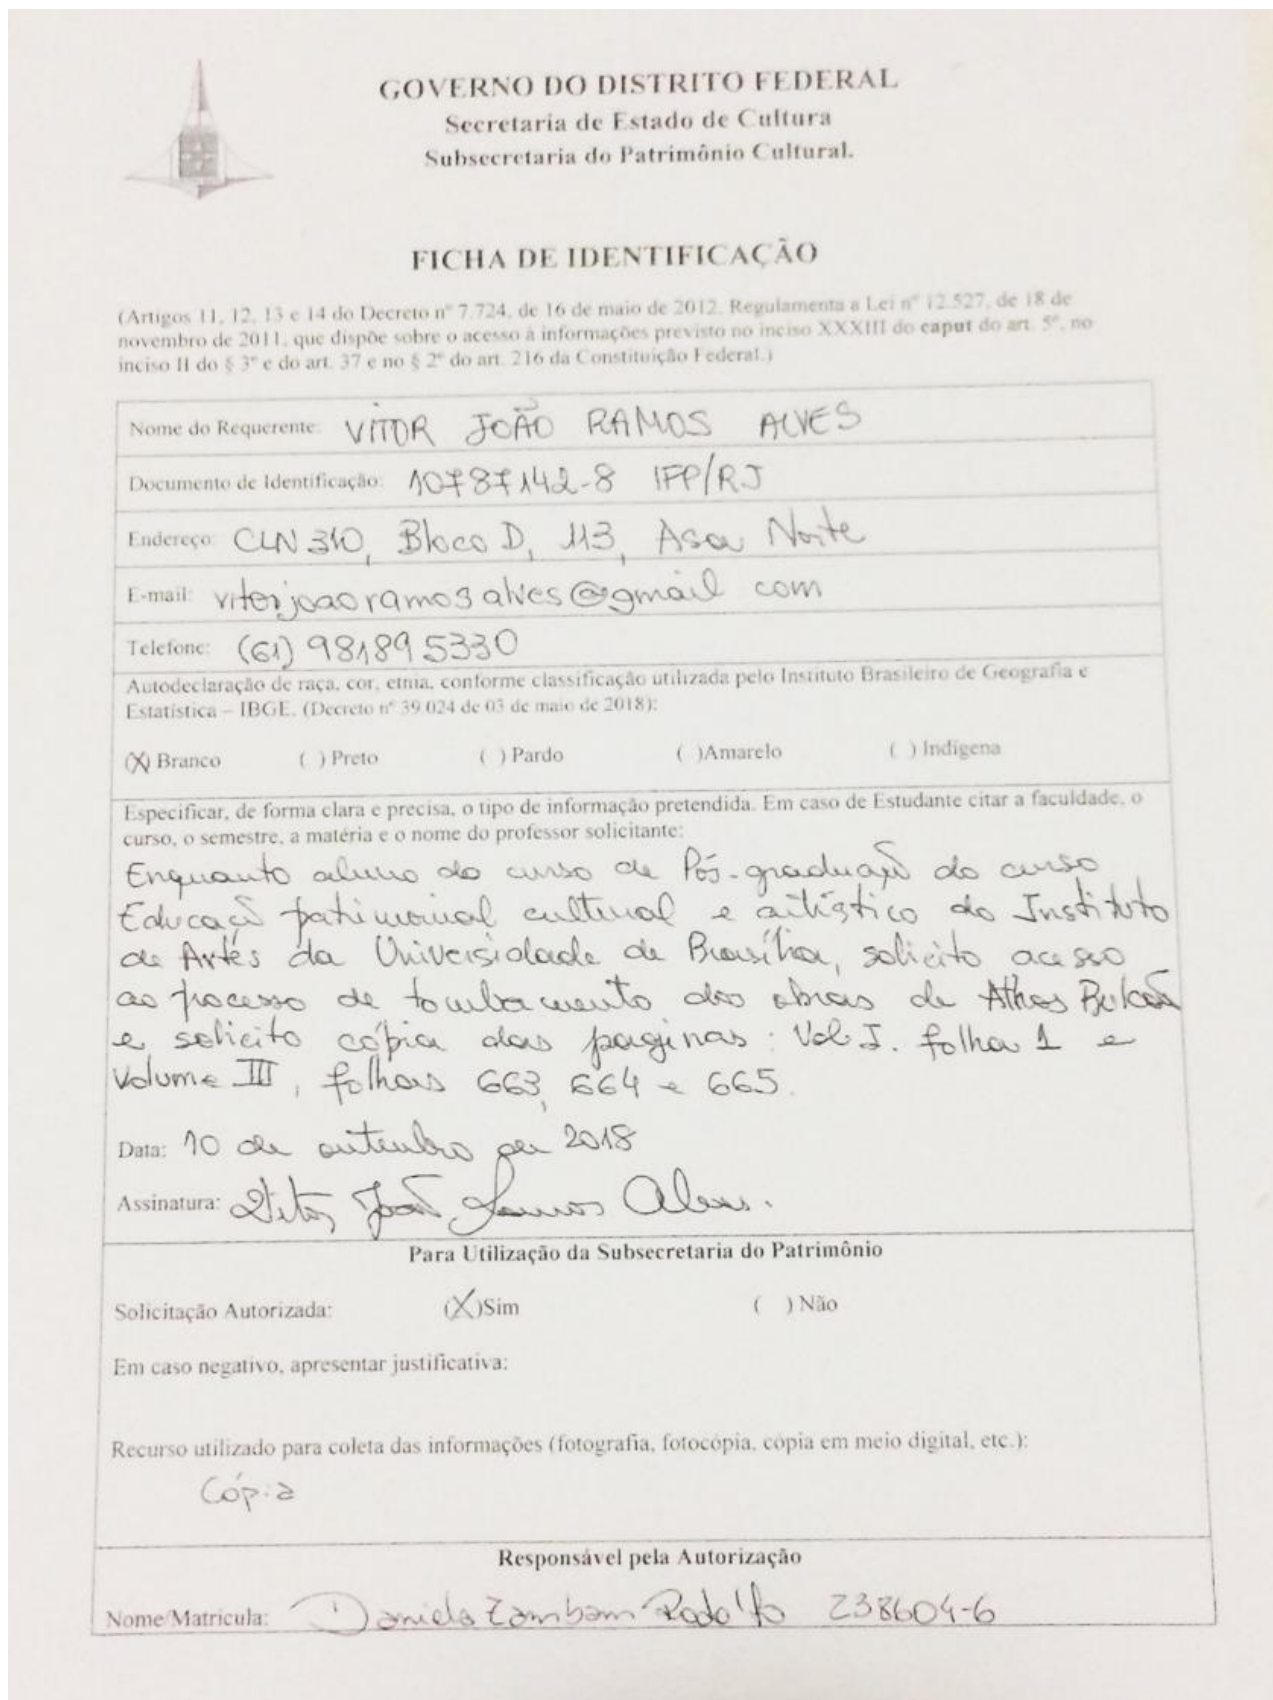 GOVERNO DO DISTRITO FEDERAL
Secretaria de Estado de Cultura
Subsecretaria do Patrimônio Cultural.
FICHA DE IDENTIFICAÇÃO
(Artigos 11, 12, 13 e 14 do Decreto nº 7.724, de 16 de maio de 2012. Regulamenta a Lei nº 12.527, de 18 de
novembro de 2011, que dispõe sobre o acesso à informações previsto no inciso XXXIII do caput do art. 5º, no
inciso II do § 3º e do art. 37 e no § 2º do art. 216 da Constituição Federal.)
Nome do Requerente: VITOR JOÃO RAMOS ALVES
Documento de Identificação: 10787142-8 IFP/RJ
Endereço: CLN 310, Bloco D, 113, Asa Norte
E-mail: vitorjoaoramosalves@gmail com
Telefone: (61) 981895330
Autodeclaração de raça, cor, etnia, conforme classificação utilizada pelo Instituto Brasileiro de Geografia e
Estatística – IBGE. (Decreto nº 39.024 de 03 de maio de 2018):
(X) Branco ( ) Preto ( ) Pardo ( )Amarelo ( ) Indígena
Especificar, de forma clara e precisa, o tipo de informação pretendida. Em caso de Estudante citar a faculdade, o
curso, o semestre, a matéria e o nome do professor solicitante:
Enquanto aluno do curso de Pós-graduação do curso
Educação patrimonial cultural e artístico do Instituto
de Artes da Universidade de Brasília, solicito acesso
ao processo de tombamento das obras de Athos Bulcão
e solicito cópia das paginas: Vol I. folha 1 e
Volume III, folhas 663, 664 e 665.
Data: 10 de outubro de 2018
Assinatura: Vitor João Ramos Alves.
Para Utilização da Subsecretaria do Patrimônio
Solicitação Autorizada: (X)Sim ( ) Não
Em caso negativo, apresentar justificativa:
Recurso utilizado para coleta das informações (fotografia, fotocópia, cópia em meio digital, etc.):
Cópia
Responsável pela Autorização
Nome/Matricula: Daniela Zambam Rodolfo 238604-6